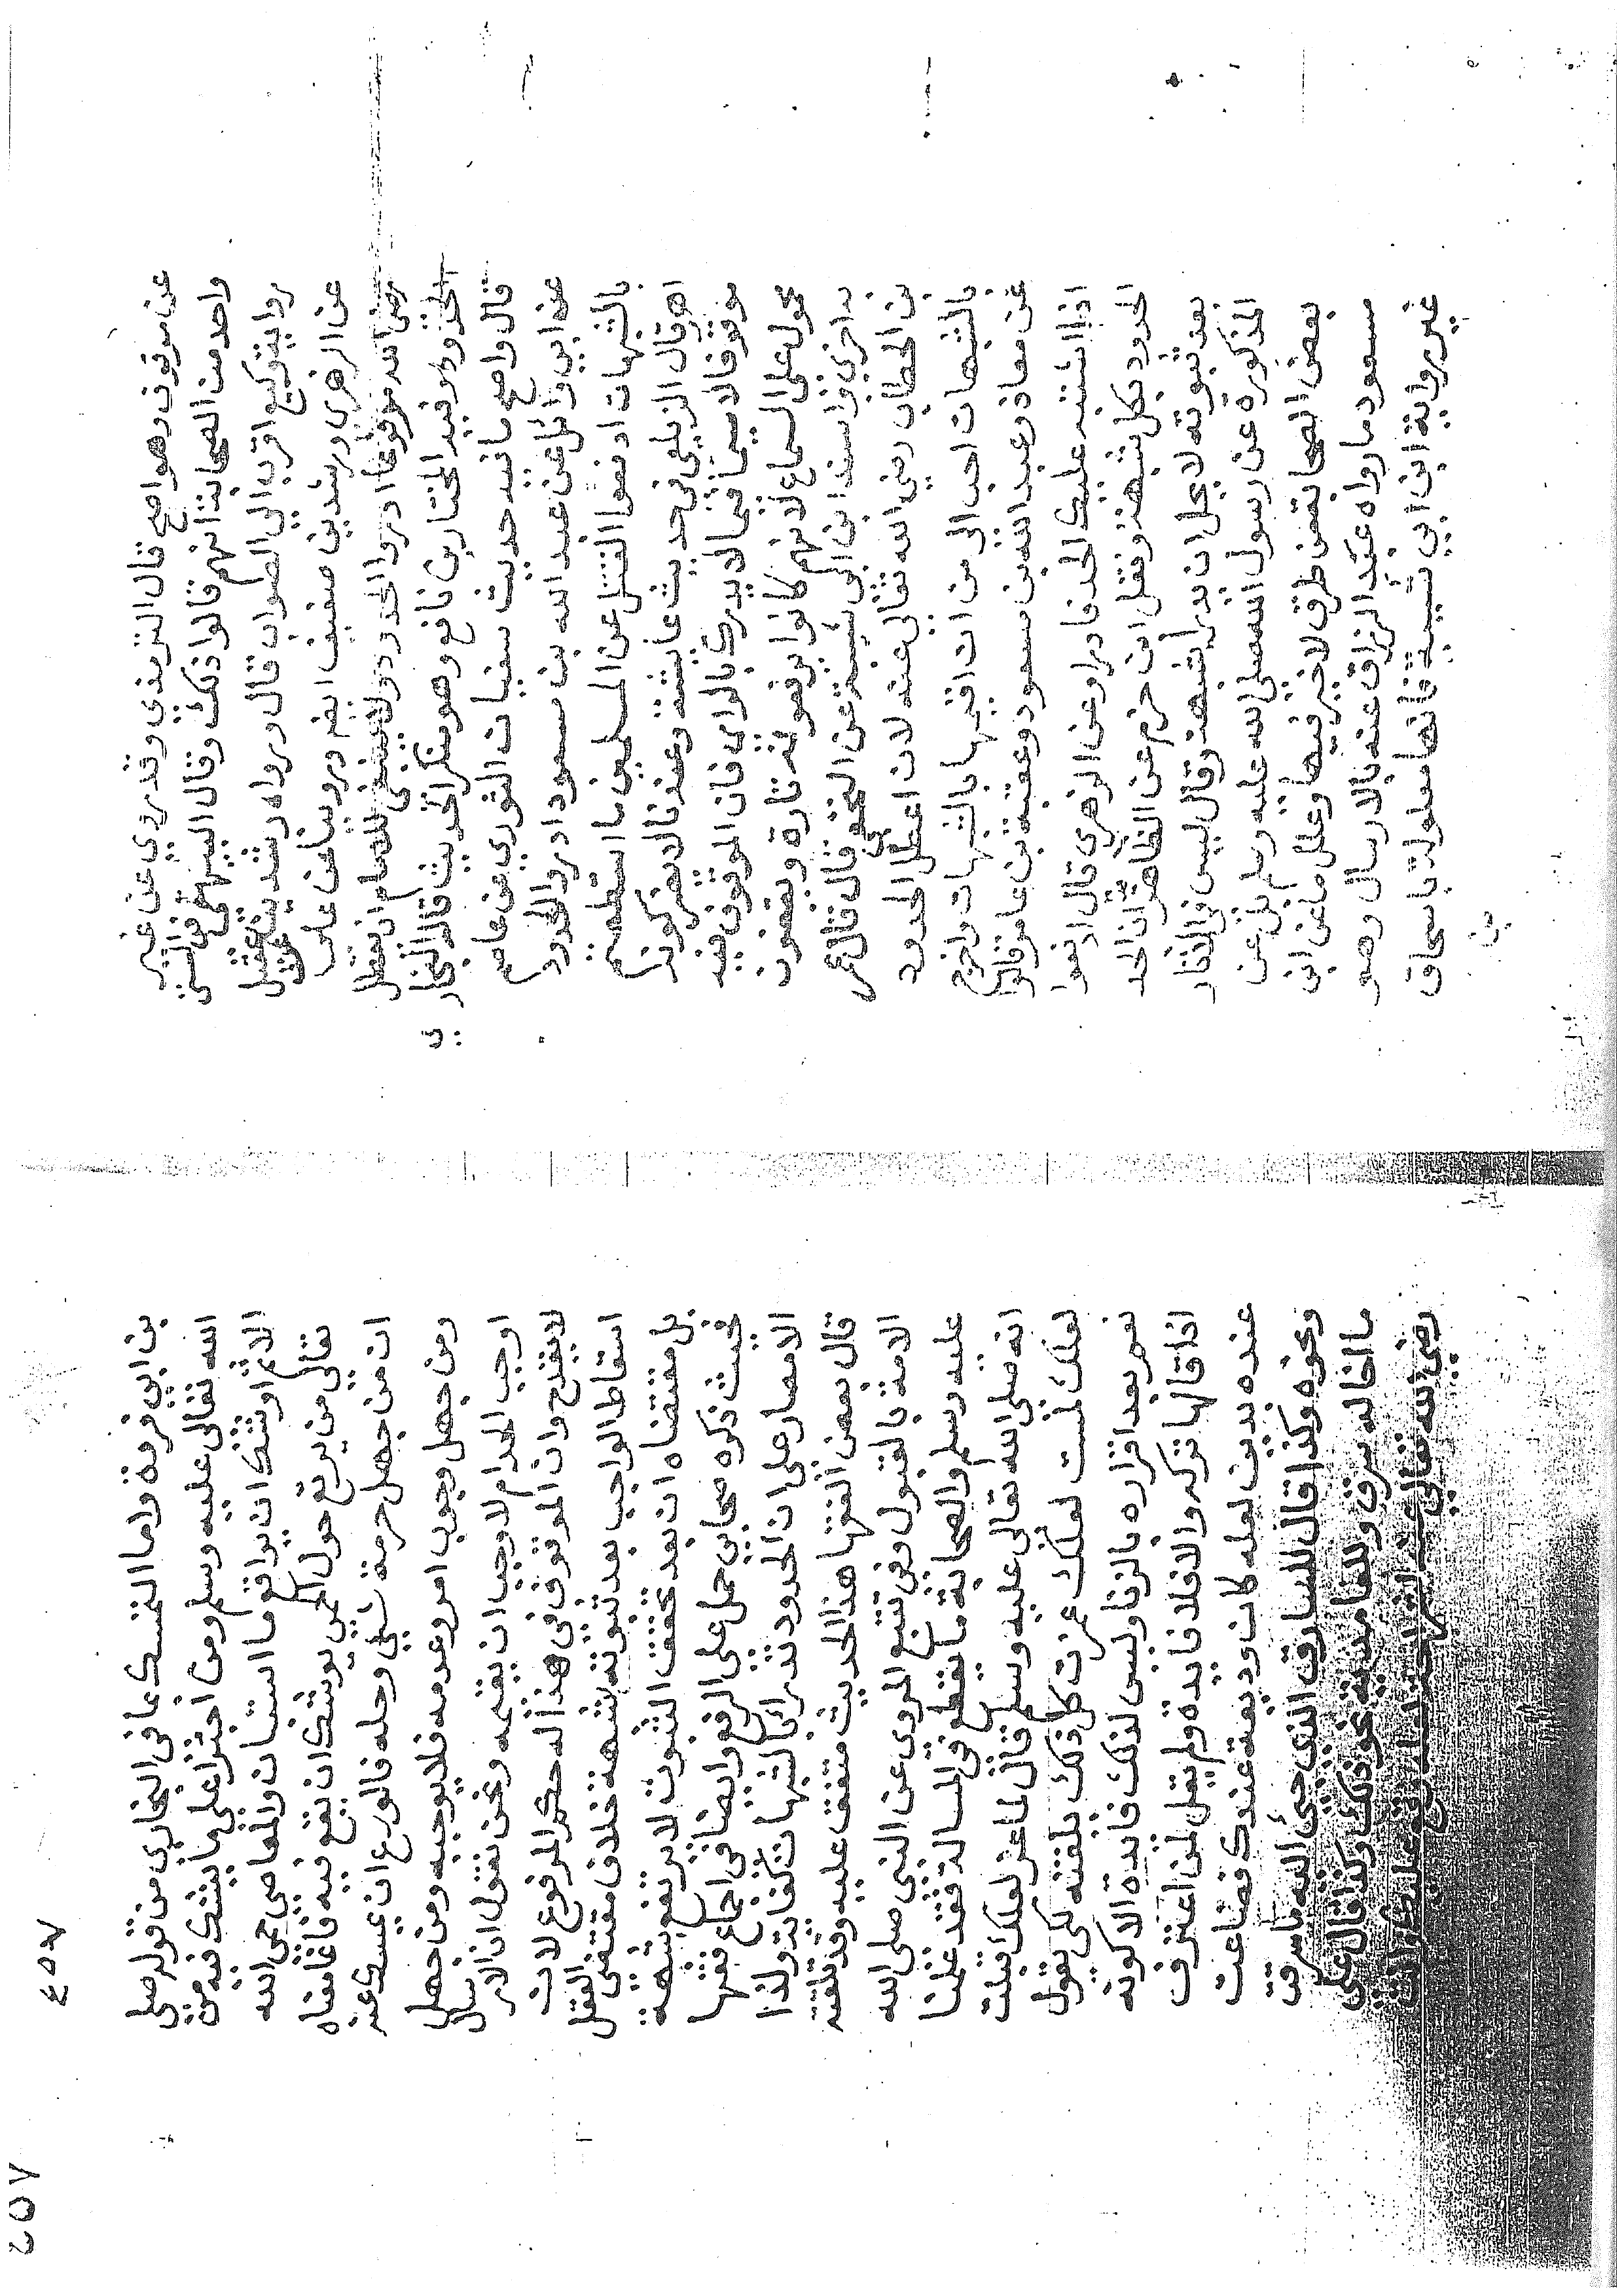 عن موقوف وهو اصح قال الترمذي وقد روي عن غير
واحد من الصحابة انهم قالوا ذلك وقال البيهقي في السنن
رواية وكيع اقرب الى الصواب قال ورواه رشدين عن عقيل
عن الزهري ورشدين ضعيف ايضا وروينا عن علي
رضي الله مرفوعا ادروا الحدود ولا ينبغي للامام ان يعطل
الحدود وفيه المختار بن نافع وهو منكر الحديث قاله البخاري
قال واصح ما فيه حديث سفيان الثوري عن عاصم
عن ابي وائل عن عبد الله بن مسعود ادروا الحدود
بالشبهات ادفعوا القتل عن المسلمين ما استطعتم
اهـ قال الزيلعي في حديث عايشة وعندنا لا يضر كونه
موقوفا لا سيما فيما لا يدرك بالراي فان الموقوف فيه
محمول على السماع لانهم كانوا يرفعونه تارة ويقفون
به اخرى واسند ابن ابي شيبة عن النخعي قال قال عمر
بن الخطاب رضي الله تعالى عنه لان اعطل الحدود
بالشبهات احب الى من ان اقيمها بالشبهات واخرج
عن معاذ وعبد الله بن مسعود وعقبة بن عامر قالوا
اذا اشتبه عليك الحد فادراه وعن الزهري قال ادفعوا
الحدود بكل شبهة ونقل ابن حزم عن الظاهرية ان الحد
بعد ثبوته لا يحل ان يدرأ بشبهة وقال ليس في الاثار
المذكورة عن رسول الله صلى الله عليه وسلم بل عن
بعض الصحابة من طرق لا خير فيها وعلل ما عن ابن
مسعود مما رواه عبد الرزاق عنه بالارسال وهو
غير رواية ابن ابي شيبة فانها معلولة باسحاق
بن
بن ابي فروة واما التمسك بما في البخاري من قوله صلى
الله تعالى عليه وسلم ومن اجترا على ما يشك فيه من
الاثم اوشك ان يواقع ما استبان والمعاصي حمى الله
تعالى من يرتع حول الحمى يوشك ان يقع فيه فانما معناه
ان من جهل حرمة شيء وحله فالورع ان يمسك عنه
ومن جهل وجوب امر وعدمه فلا يوجبه ومن جهل
اوجب الحد ام لا وجب ان يقيمه ونحن نقول ان الارسال
لا يقدح وان الموقوف في هذا له حكم المرفوع لان
اسقاط الواجب بعد ثبوته بشبهة خلاف مقتضى العقل
بل مقتضاه ان بعد تحقق الثبوت لا يرتفع بشبهة
فحيث ذكره صحابي حمل على الرفع وايضا في اجماع فقهاء
الامصار على ان الحدود تدرا بالشبهات كفاية ولذا
قال بعض الفقهاء هذا الحديث متفق عليه وقد تلقته
الامة بالقبول وفي تتبع المروي عن النبي صلى الله
عليه وسلم والصحابة ما يقطع في المسالة فقد علمنا
انه صلى الله تعالى عليه وسلم قال لماعز لعلك قبلت
لعلك لمست لعلك غمزت كل ذلك يلقنه لكي يقول
نعم بعد اقراره بالزنا وليس لذلك فايدة الا كونه
اذا قالها تركه والا فلا فايدة ولم يقل لمن اعترف
عنده بدين لعله كان وديعة عندك فضاعت
ونحوه وكذا قال للسارق الذي جيء اليه ما سرق
ما اخاله سرق وللغامدية نحو ذلك وكذا قال علي
رضي الله تعالى عنه لشراحة